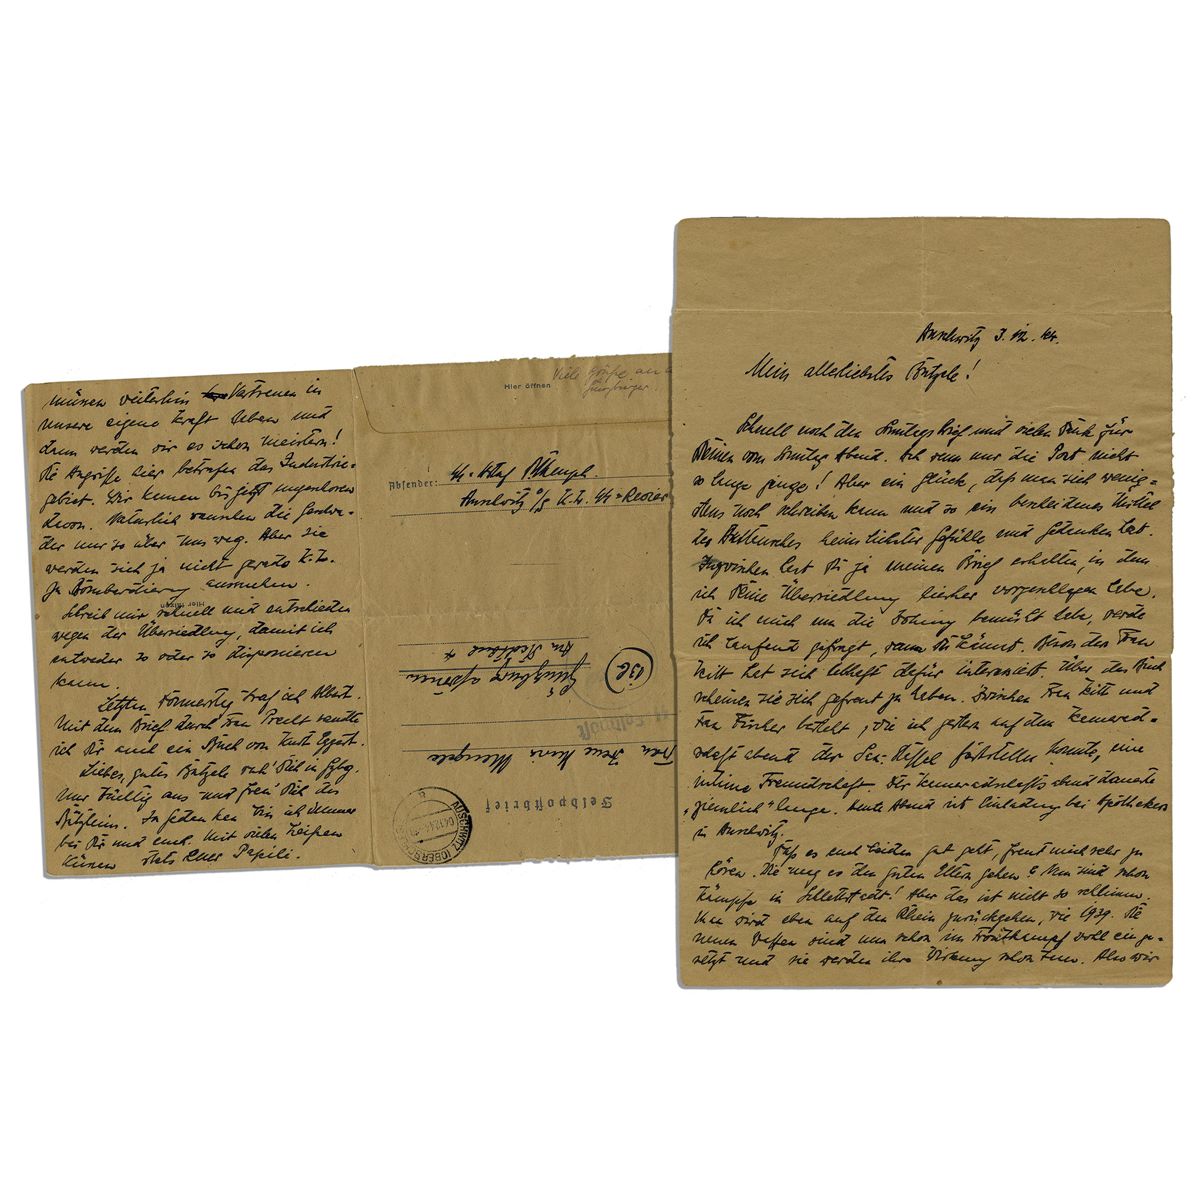 Auschwitz 3.12.44.
Mein allerliebstes Butzele!
Schnell noch den Sonntagsbrief und vielen Dank für
Deinen vom Sonntag Abend. Ich wenn nur die Post nicht
so lange ginge! Aber ein Glück, daß man sich wenig-
stens noch schreiben kann und so ein bescheidenes Mittel
des Austausches heimlichster Gefühle und Gedanken hat.
Inzwischen hast Du ja meinen Brief erhalten, in dem
ich Deine Übersiedlung hierher vorgeschlagen habe.
Da ich mich um die Wohnung bemüht habe, werde
ich laufend gefragt, wann Du kämst. Besonders Frau
Kitt hat sich lebhaft dafür interessiert. Über das Buch
scheinen sie sich gefreut zu haben. Zwischen Frau Kitt und
Frau Fischer besteht, wie ich gestern auf dem Kamerad-
schaftsabend der San-Staffel feststellen konnte, eine
intime Freundschaft. Der Kameradschaftsabend dauerte
"ziemlich" lange. Heute Abend ist Einladung bei Apothekers
in Auschwitz.
Daß es euch beiden gut geht, freut mich sehr zu
hören. Wie mag es den guten Eltern gehen? Nun sind schon
Kämpfe in Schlettstadt! Aber das ist nicht so schlimm.
Man wird eben auf den Rhein zurückgehen, wie 1939. Die
neuen Waffen sind nun schon im Frontkampf wohl einge-
setzt und sie werden ihre Wirkung schon tun. Also wir
müssen weiterhin Vertrauen in
unsere eigene Kraft haben und
dann werden wir es schon meistern!
Die Angriffe hier betrafen das Industrie-
gebiet. Wir kennen bis jetzt ungeschoren
davon. Natürlich rauschen die Geschwa-
der nur so über uns weg. Aber sie
werden sich ja nicht gerade K.L.
zu Bombardierung aussuchen.
Schreib mir schnell und entschieden
wegen der Übersiedlung, damit ich
entweder so oder so disponieren
kann.
Letzten Donnerstag traf ich Albert.
Mit dem Brief durch Frau Precht sandte
ich Dir auch ein Buch von Kurt
Liebes, gutes Butzele ruh' Dich in Gzbg.
nur tüchtig aus und freu' Dich des
Bützleins. In Gedanken bin ich immer
bei Dir und euch. Mit vielen heißen
Küssen stets Euer Papili.
Hier falten
Viele Grüße an
Günzburger.
Hier öffnen
Absender:
Auschwitz O/S K.L. SS-Revier
Feldpostbrief
Frau Irene Maria Mengele
Günzburg a/Donau
SS-Feldpost
AUSCHWITZ (OBERSCHLES)